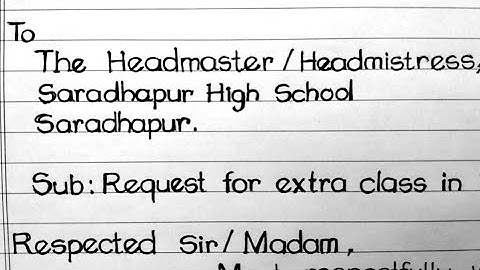 To
The Headmaster/Headmistress,
Saradhapur High School
Saradhapur.
Sub: Request for extra class in
Respected Sir/Madam,